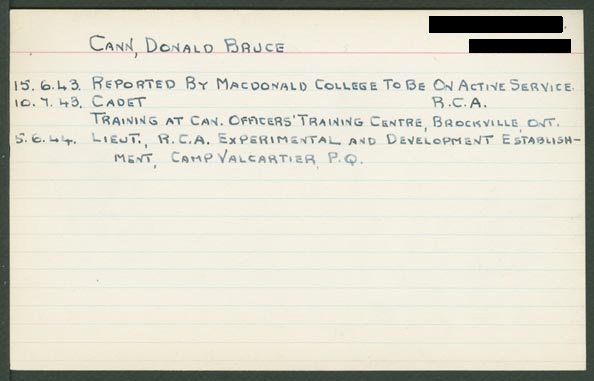 CANN, DONALD BRUCE
15.6.43. REPORTED BY MACDONALD COLLEGE TO BE ON ACTIVE SERVICE.
10.7.43. CADET R.C.A.
TRAINING AT CAN. OFFICERS' TRAINING CENTRE, BROCKVILLE, ONT.
5.6.44. LIEUT., R.C.A. EXPERIMENTAL AND DEVELOPMENT ESTABLISH-
MENT, CAMP VALCARTIER, P.Q.